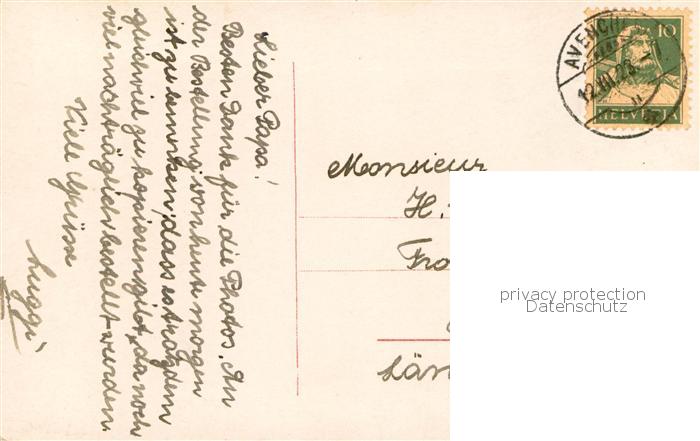 Lieber Papa!
Besten Dank für die Photos. An
der Bestellung von heute morgen
ist zu bemerken, dass es trotzdem
gleichviel zu kopieren gibt, da noch
viel nachträglich bestellt wurden.
Viele Grüsse
Monsieur
H.
Fra
Län
10
HELVETIA
AVENCH
12.VII.23
privacy protection
Datenschutz